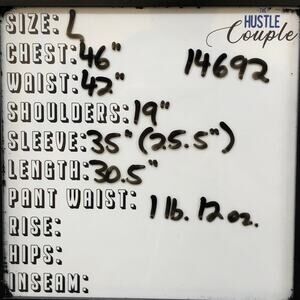 THE
HUSTLE
Couple
SIZE: L
CHEST: 46"
14692
WAIST: 42"
SHOULDERS: 19"
SLEEVE: 35" (25.5")
LENGTH: 30.5"
PANT WAIST:
1 lb. 12 oz.
RISE:
HIPS:
INSEAM: